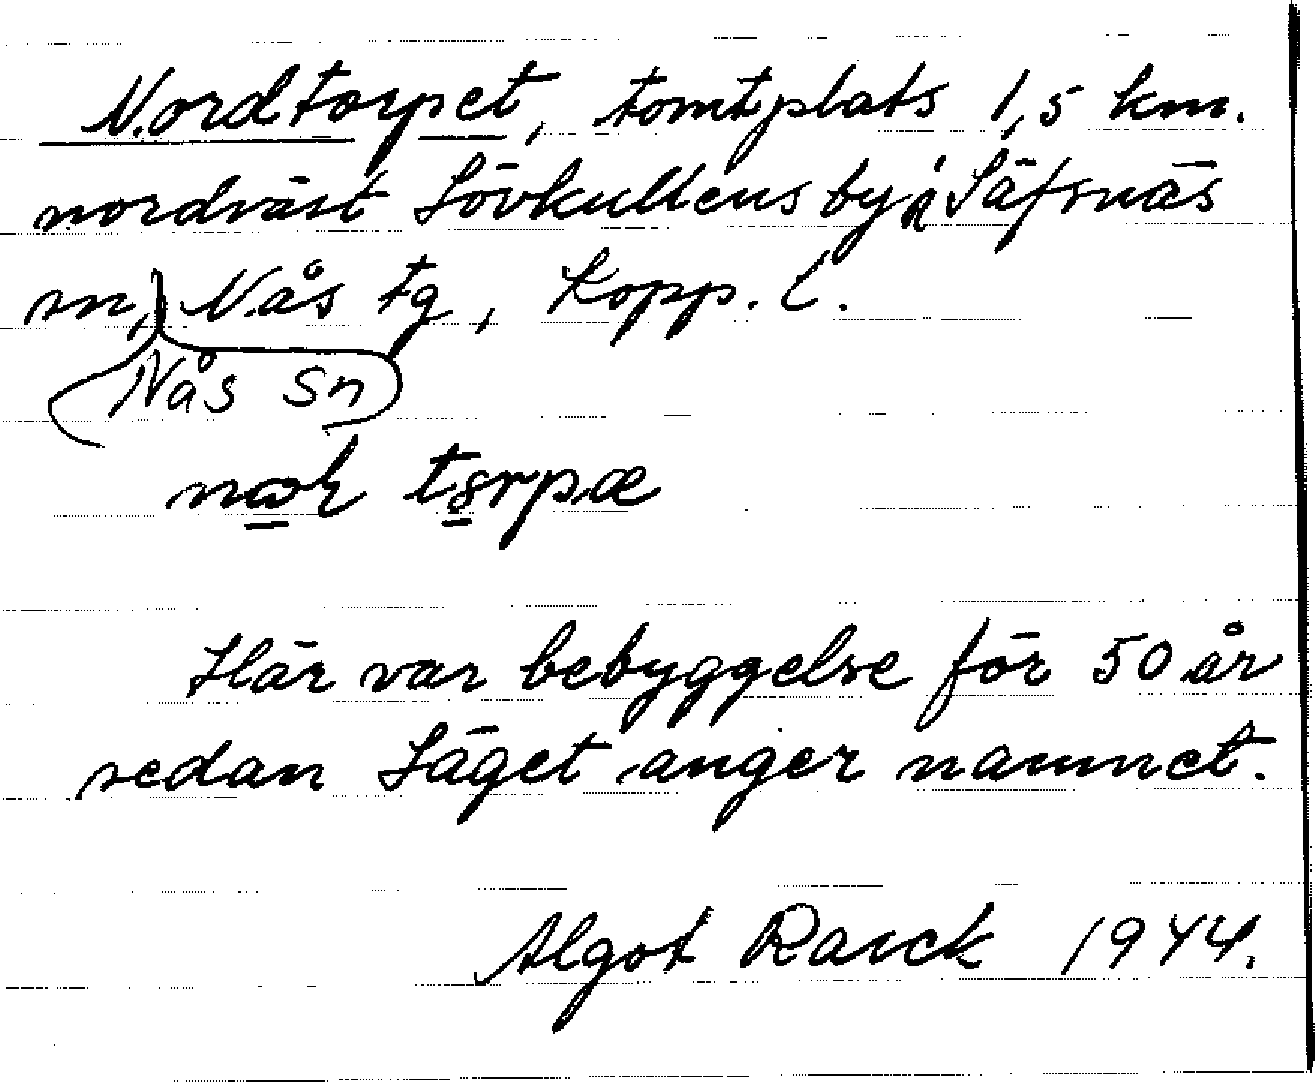 Nordtorpet, tomtplats 1,5 km.
nordväst Lövkullens by i Säfsnäs
sn, Nås tg, Kopp. l.
Nås sn
Här var bebyggelse för 50 år
sedan Läget anger namnet.
Algot Rasck 1944.